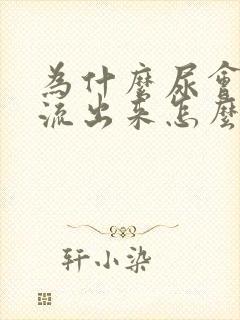 為什麼尿會
流出来怎麼
轩小染